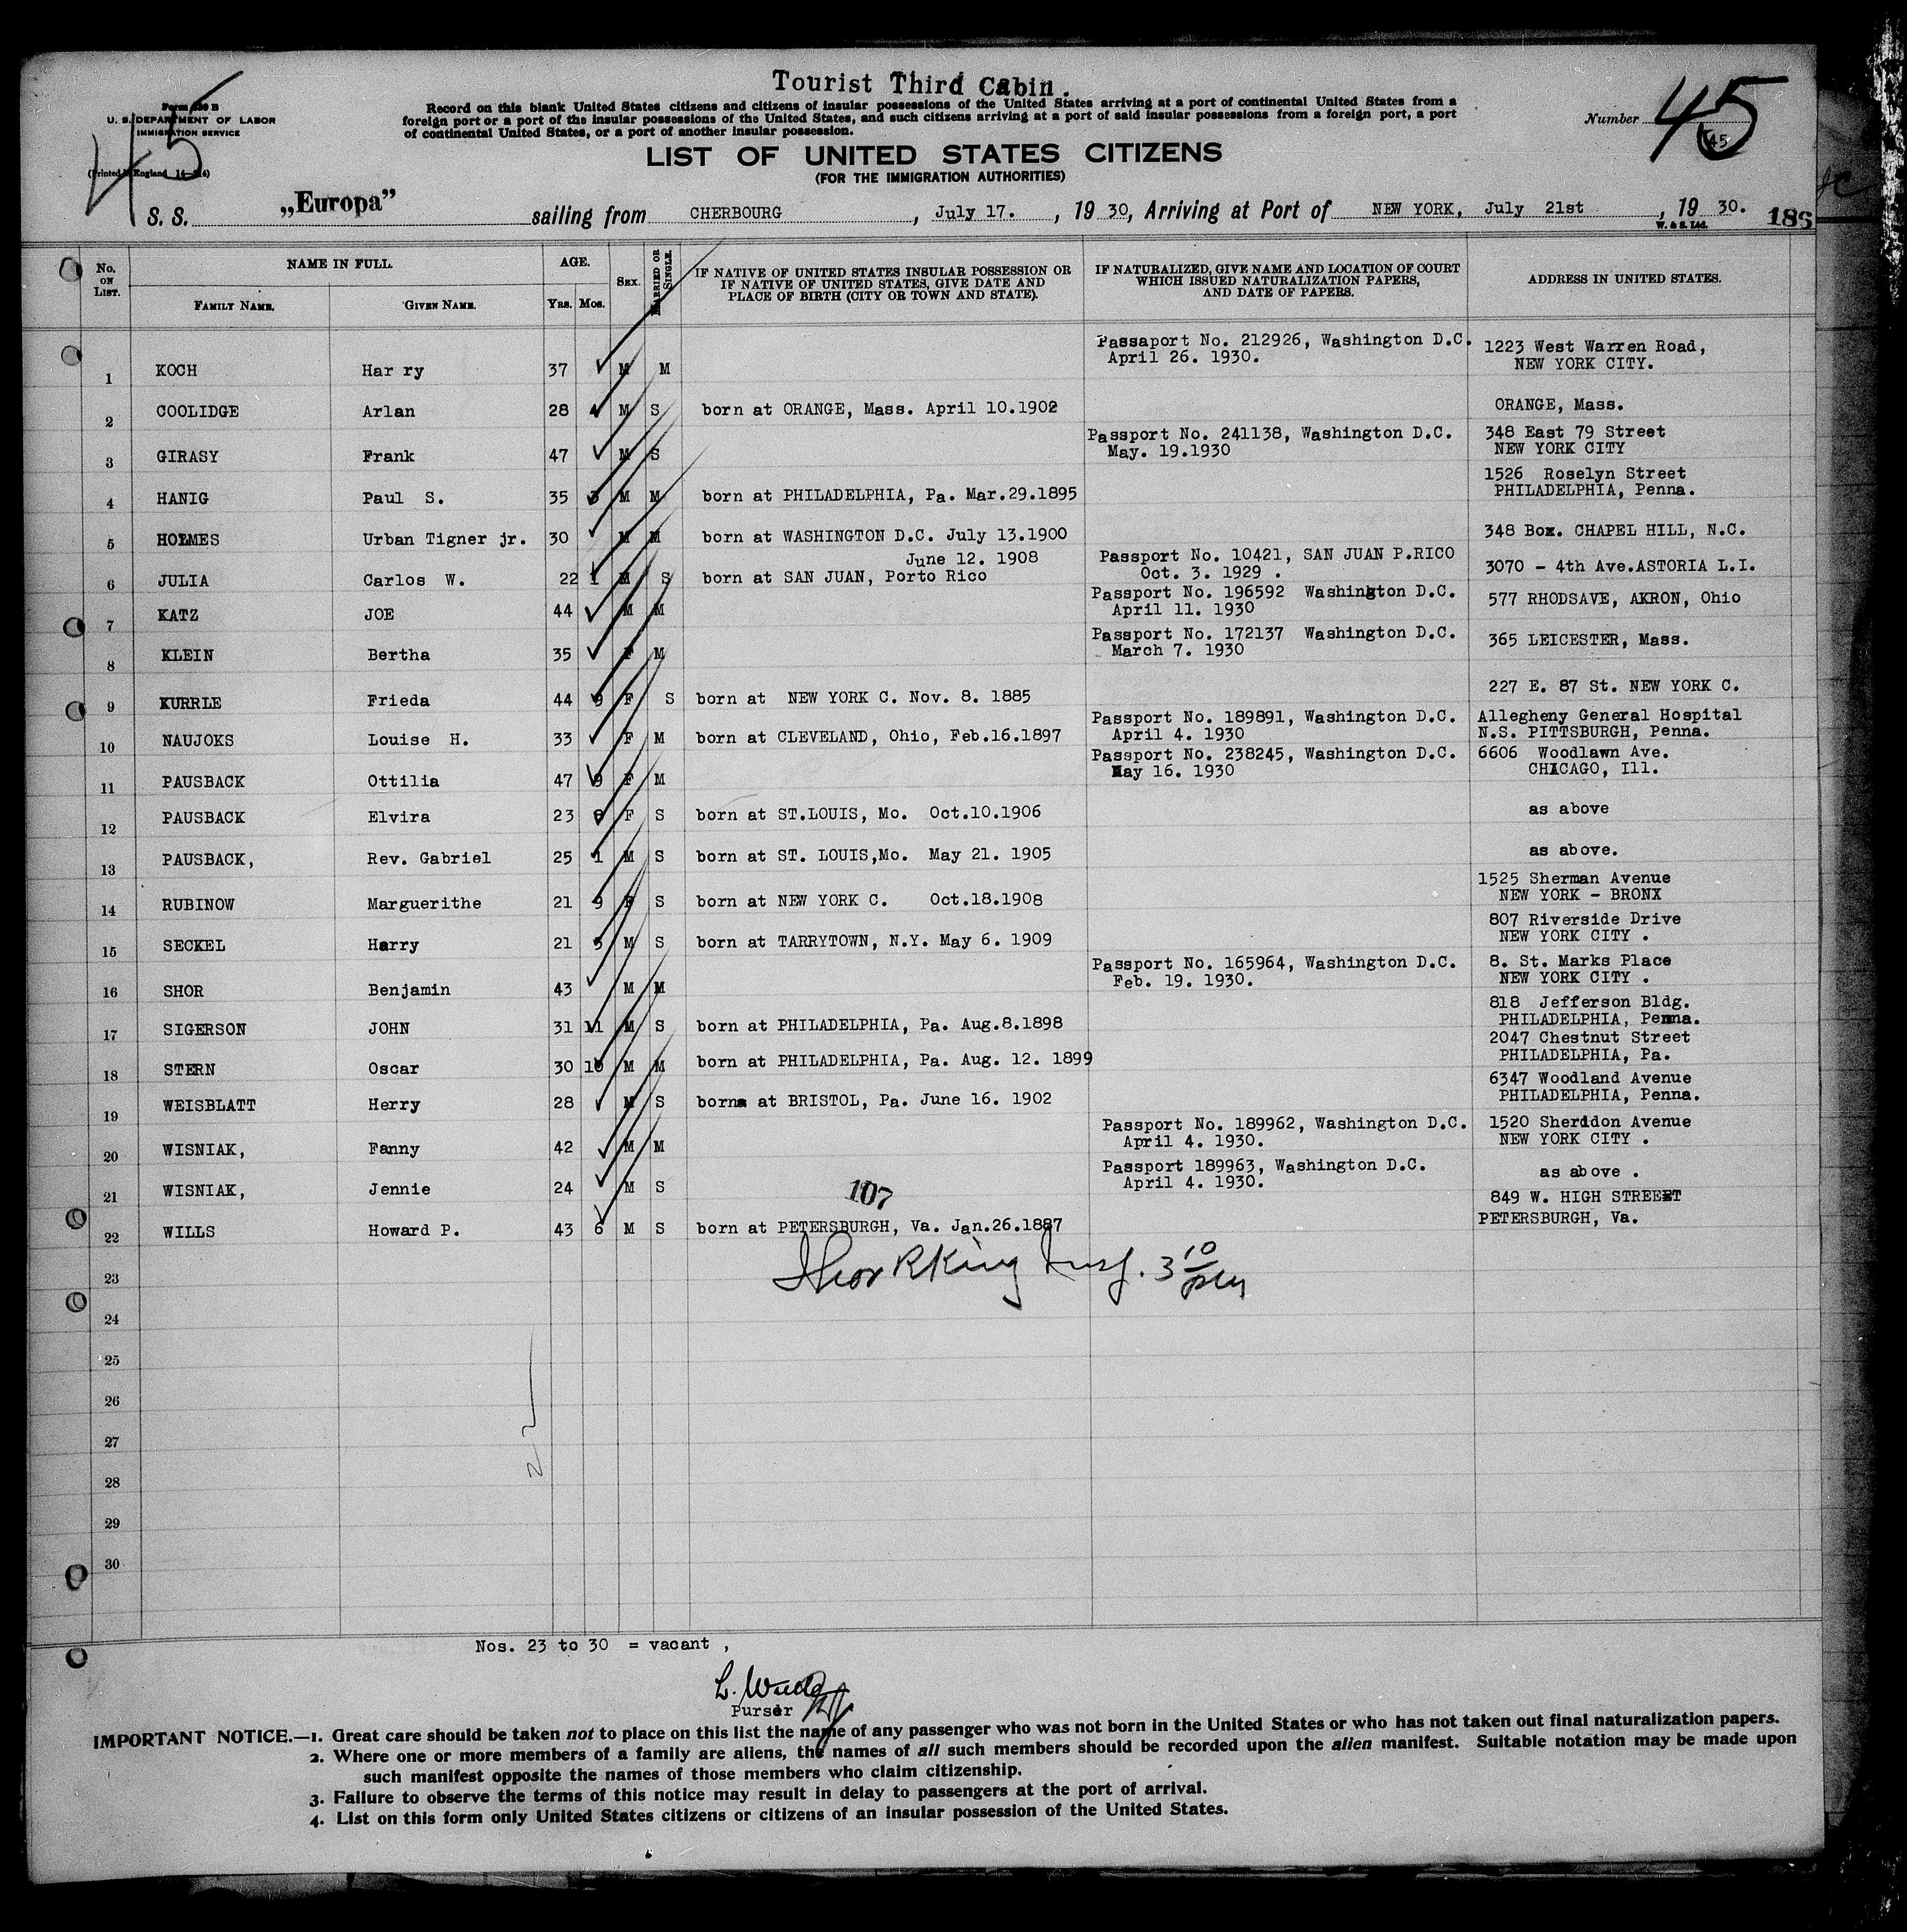 Tourist Third Cabin.
Form 630 B
U. S. DEPARTMENT OF LABOR
IMMIGRATION SERVICE
45
Record on this blank United States citizens and citizens of insular possessions of the United States arriving at a port of continental United States from a
foreign port or a port of the insular possessions of the United States, and such citizens arriving at a port of said insular possessions from a foreign port, a port
of continental United States, or a port of another insular possession.
Number 45
45
LIST OF UNITED STATES CITIZENS
(FOR THE IMMIGRATION AUTHORITIES)
S. S. „Europa” sailing from CHERBOURG, July 17., 19 30, Arriving at Port of NEW YORK, July 21st, 19 30.
W. & S. Ltd.
186
No. ON LIST. NAME IN FULL. AGE. SEX. MARRIED OR SINGLE. IF NATIVE OF UNITED STATES INSULAR POSSESSION OR IF NATIVE OF UNITED STATES, GIVE DATE AND PLACE OF BIRTH (CITY OR TOWN AND STATE). IF NATURALIZED, GIVE NAME AND LOCATION OF COURT WHICH ISSUED NATURALIZATION PAPERS, AND DATE OF PAPERS. ADDRESS IN UNITED STATES.
FAMILY NAME. GIVEN NAME. YRS. MOS.
1 KOCH Har ry 37 M M Passaport No. 212926, Washington D.C. April 26. 1930. 1223 West Warren Road, NEW YORK CITY.
2 COOLIDGE Arlan 28 4 M S born at ORANGE, Mass. April 10.1902 ORANGE, Mass.
3 GIRASY Frank 47 M S Passport No. 241138, Washington D.C. May. 19.1930 348 East 79 Street NEW YORK CITY
4 HANIG Paul S. 35 3 M M born at PHILADELPHIA, Pa. Mar.29.1895 1526 Roselyn Street PHILADELPHIA, Penna.
5 HOLMES Urban Tigner jr. 30 M M born at WASHINGTON D.C. July 13.1900 348 Box. CHAPEL HILL, N.C.
6 JULIA Carlos W. 22 1 M S June 12. 1908 born at SAN JUAN, Porto Rico Passport No. 10421, SAN JUAN P.RICO Oct. 3. 1929 . 3070 - 4th Ave.ASTORIA L.I.
7 KATZ JOE 44 M M Passport No. 196592 Washington D.C. April 11. 1930 577 RHODSAVE, AKRON, Ohio
8 KLEIN Bertha 35 F M Passport No. 172137 Washington D.C. March 7. 1930 365 LEICESTER, Mass.
9 KURRLE Frieda 44 9 F S born at NEW YORK C. Nov. 8. 1885 227 E. 87 St. NEW YORK C.
10 NAUJOKS Louise H. 33 F M born at CLEVELAND, Ohio, Feb.16.1897 Passport No. 189891, Washington D.C. April 4. 1930 Allegheny General Hospital N.S. PITTSBURGH, Penna.
11 PAUSBACK Ottilia 47 9 F M Passport No. 238245, Washington D.C. May 16. 1930 6606 Woodlawn Ave. CHICAGO, Ill.
12 PAUSBACK Elvira 23 8 F S born at ST.LOUIS, Mo. Oct.10.1906 as above
13 PAUSBACK, Rev. Gabriel 25 1 M S born at ST. LOUIS,Mo. May 21. 1905 as above.
14 RUBINOW Marguerithe 21 9 F S born at NEW YORK C. Oct.18.1908 1525 Sherman Avenue NEW YORK - BRONX
15 SECKEL Harry 21 5 M S born at TARRYTOWN, N.Y. May 6. 1909 807 Riverside Drive NEW YORK CITY .
16 SHOR Benjamin 43 M M Passport No. 165964, Washington D.C. Feb. 19. 1930. 8. St. Marks Place NEW YORK CITY .
17 SIGERSON JOHN 31 11 M S born at PHILADELPHIA, Pa. Aug.8.1898 818 Jefferson Bldg. PHILADELPHIA, Penna.
18 STERN Oscar 30 10 M M born at PHILADELPHIA, Pa. Aug. 12. 1899 2047 Chestnut Street PHILADELPHIA, Pa.
19 WEISBLATT Herry 28 M S born at BRISTOL, Pa. June 16. 1902 6347 Woodland Avenue PHILADELPHIA, Penna.
20 WISNIAK, Fanny 42 M M Passport No. 189962, Washington D.C. April 4. 1930. 1520 Sheridon Avenue NEW YORK CITY .
21 WISNIAK, Jennie 24 M S Passport 189963, Washington D.C. April 4. 1930. as above .
107
22 WILLS Howard P. 43 6 M S born at PETERSBURGH, Va. Jan.26.1887 849 W. HIGH STREET PETERSBURGH, Va.
23
24
25
26
27
28
29
30
Nos. 23 to 30 = vacant ,
Purser
IMPORTANT NOTICE.—1. Great care should be taken not to place on this list the name of any passenger who was not born in the United States or who has not taken out final naturalization papers.
2. Where one or more members of a family are aliens, the names of all such members should be recorded upon the alien manifest. Suitable notation may be made upon
such manifest opposite the names of those members who claim citizenship.
3. Failure to observe the terms of this notice may result in delay to passengers at the port of arrival.
4. List on this form only United States citizens or citizens of an insular possession of the United States.